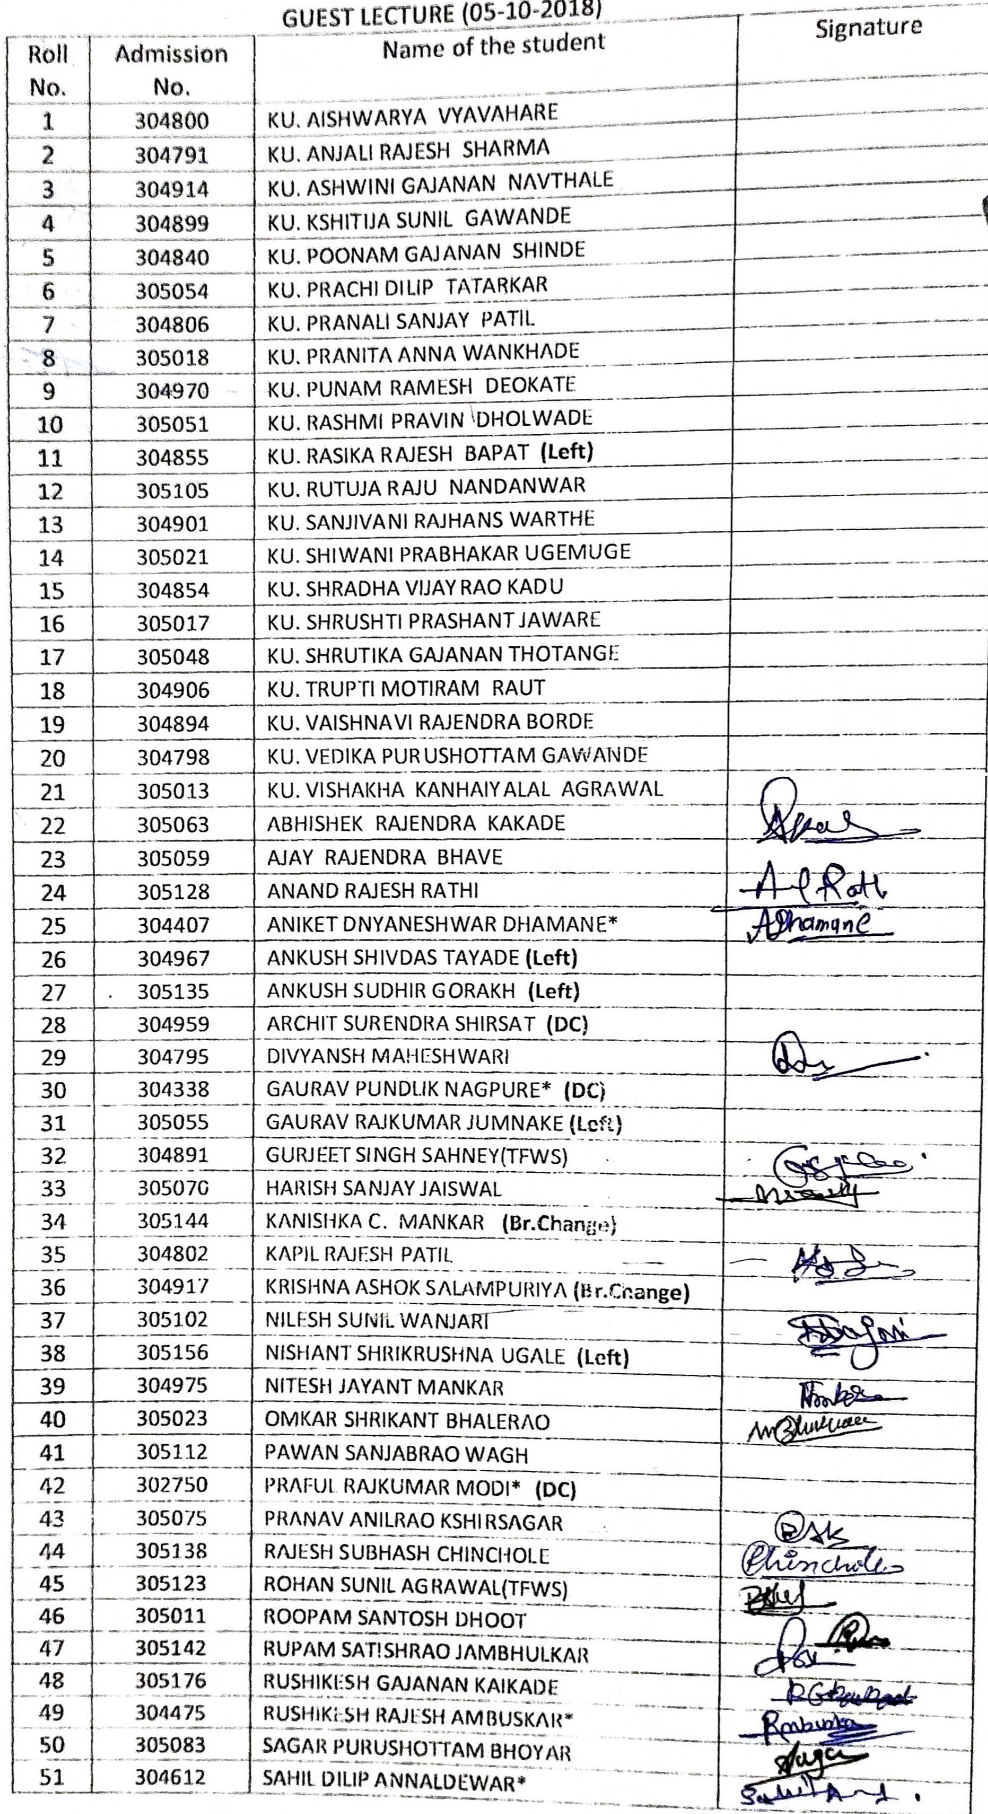 GUEST LECTURE (05-10-2018)
Roll No. Admission No. Name of the student Signature
1 304800 KU. AISHWARYA VYAVAHARE
2 304791 KU. ANJALI RAJESH SHARMA
3 304914 KU. ASHWINI GAJANAN NAVTHALE
4 304899 KU. KSHITIJA SUNIL GAWANDE
5 304840 KU. POONAM GAJANAN SHINDE
6 305054 KU. PRACHI DILIP TATARKAR
7 304806 KU. PRANALI SANJAY PATIL
8 305018 KU. PRANITA ANNA WANKHADE
9 304970 KU. PUNAM RAMESH DEOKATE
10 305051 KU. RASHMI PRAVIN DHOLWADE
11 304855 KU. RASIKA RAJESH BAPAT (Left)
12 305105 KU. RUTUJA RAJU NANDANWAR
13 304901 KU. SANJIVANI RAJHANS WARTHE
14 305021 KU. SHIWANI PRABHAKAR UGEMUGE
15 304854 KU. SHRADHA VIJAYRAO KADU
16 305017 KU. SHRUSHTI PRASHANT JAWARE
17 305048 KU. SHRUTIKA GAJANAN THOTANGE
18 304906 KU. TRUPTI MOTIRAM RAUT
19 304894 KU. VAISHNAVI RAJENDRA BORDE
20 304798 KU. VEDIKA PURUSHOTTAM GAWANDE
21 305013 KU. VISHAKHA KANHAIYALAL AGRAWAL
22 305063 ABHISHEK RAJENDRA KAKADE
23 305059 AJAY RAJENDRA BHAVE
24 305128 ANAND RAJESH RATHI
25 304407 ANIKET DNYANESHWAR DHAMANE* ADhamane
26 304967 ANKUSH SHIVDAS TAYADE (Left)
27 305135 ANKUSH SUDHIR GORAKH (Left)
28 304959 ARCHIT SURENDRA SHIRSAT (DC)
29 304795 DIVYANSH MAHESHWARI
30 304338 GAURAV PUNDLIK NAGPURE* (DC)
31 305055 GAURAV RAJKUMAR JUMNAKE (Left)
32 304891 GURJEET SINGH SAHNEY(TFWS)
33 305070 HARISH SANJAY JAISWAL
34 305144 KANISHKA C. MANKAR (Br.Change)
35 304802 KAPIL RAJESH PATIL
36 304917 KRISHNA ASHOK SALAMPURIYA (Br.Change)
37 305102 NILESH SUNIL WANJARI
38 305156 NISHANT SHRIKRUSHNA UGALE (Left)
39 304975 NITESH JAYANT MANKAR
40 305023 OMKAR SHRIKANT BHALERAO
41 305112 PAWAN SANJABRAO WAGH
42 302750 PRAFUL RAJKUMAR MODI* (DC)
43 305075 PRANAV ANILRAO KSHIRSAGAR
44 305138 RAJESH SUBHASH CHINCHOLE Chinchole
45 305123 ROHAN SUNIL AGRAWAL(TFWS)
46 305011 ROOPAM SANTOSH DHOOT
47 305142 RUPAM SATISHRAO JAMBHULKAR
48 305176 RUSHIKESH GAJANAN KAIKADE
49 304475 RUSHIKESH RAJESH AMBUSKAR*
50 305083 SAGAR PURUSHOTTAM BHOYAR
51 304612 SAHIL DILIP ANNALDEWAR*